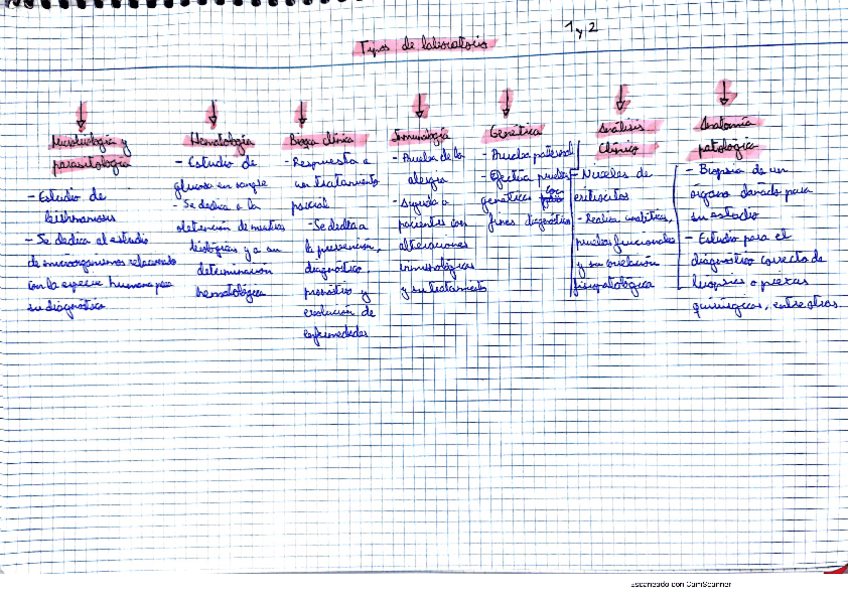 1 y 2
Tipos de laboratorio
Microbiología y
parasitología
- Estudio de
leishmaniosis
- Se dedica al estudio
de microorganismos relacionados
con la especie humana para
su diagnóstico
Hematología
- Estudio de
glucosa en sangre
- Se dedica a la
obtención de muestras
biológicas y a su
determinación
hematológica
Bioqca clínica
- Respuesta a
un tratamiento
parcial
- Se dedica a
la prevención,
diagnóstico,
pronóstico y
evolución de
enfermedades
Inmunología
- Prueba de la
alergia
- Ayuda a
pacientes con
alteraciones
inmunológicas
y su tratamiento
Genética
- Prueba paternal
- Efectúa pruebas
genéticas con
fines diagnóstico
Análisis
Clínico
- Niveles de
eritrocitos
- Realiza analíticas,
pruebas funcionales
y su correlación
fisiopatológica
Anatomía
patológica
- Biopsia de un
órgano dañado para
su estadio
- Estudio para el
diagnóstico correcto de
biopsias o piezas
quirúrgicas, entre otras.
Escaneado con CamScanner